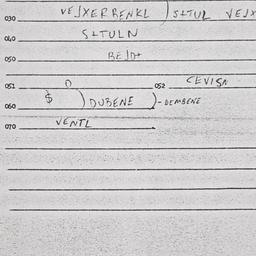 030 VEJXERBENKL ) S+TUL VEJX
040 S+TULN
050 BEJD+
051 O 052 CEVISN
060 $ ) DUBENE )- DEMBENE
070 VENTL